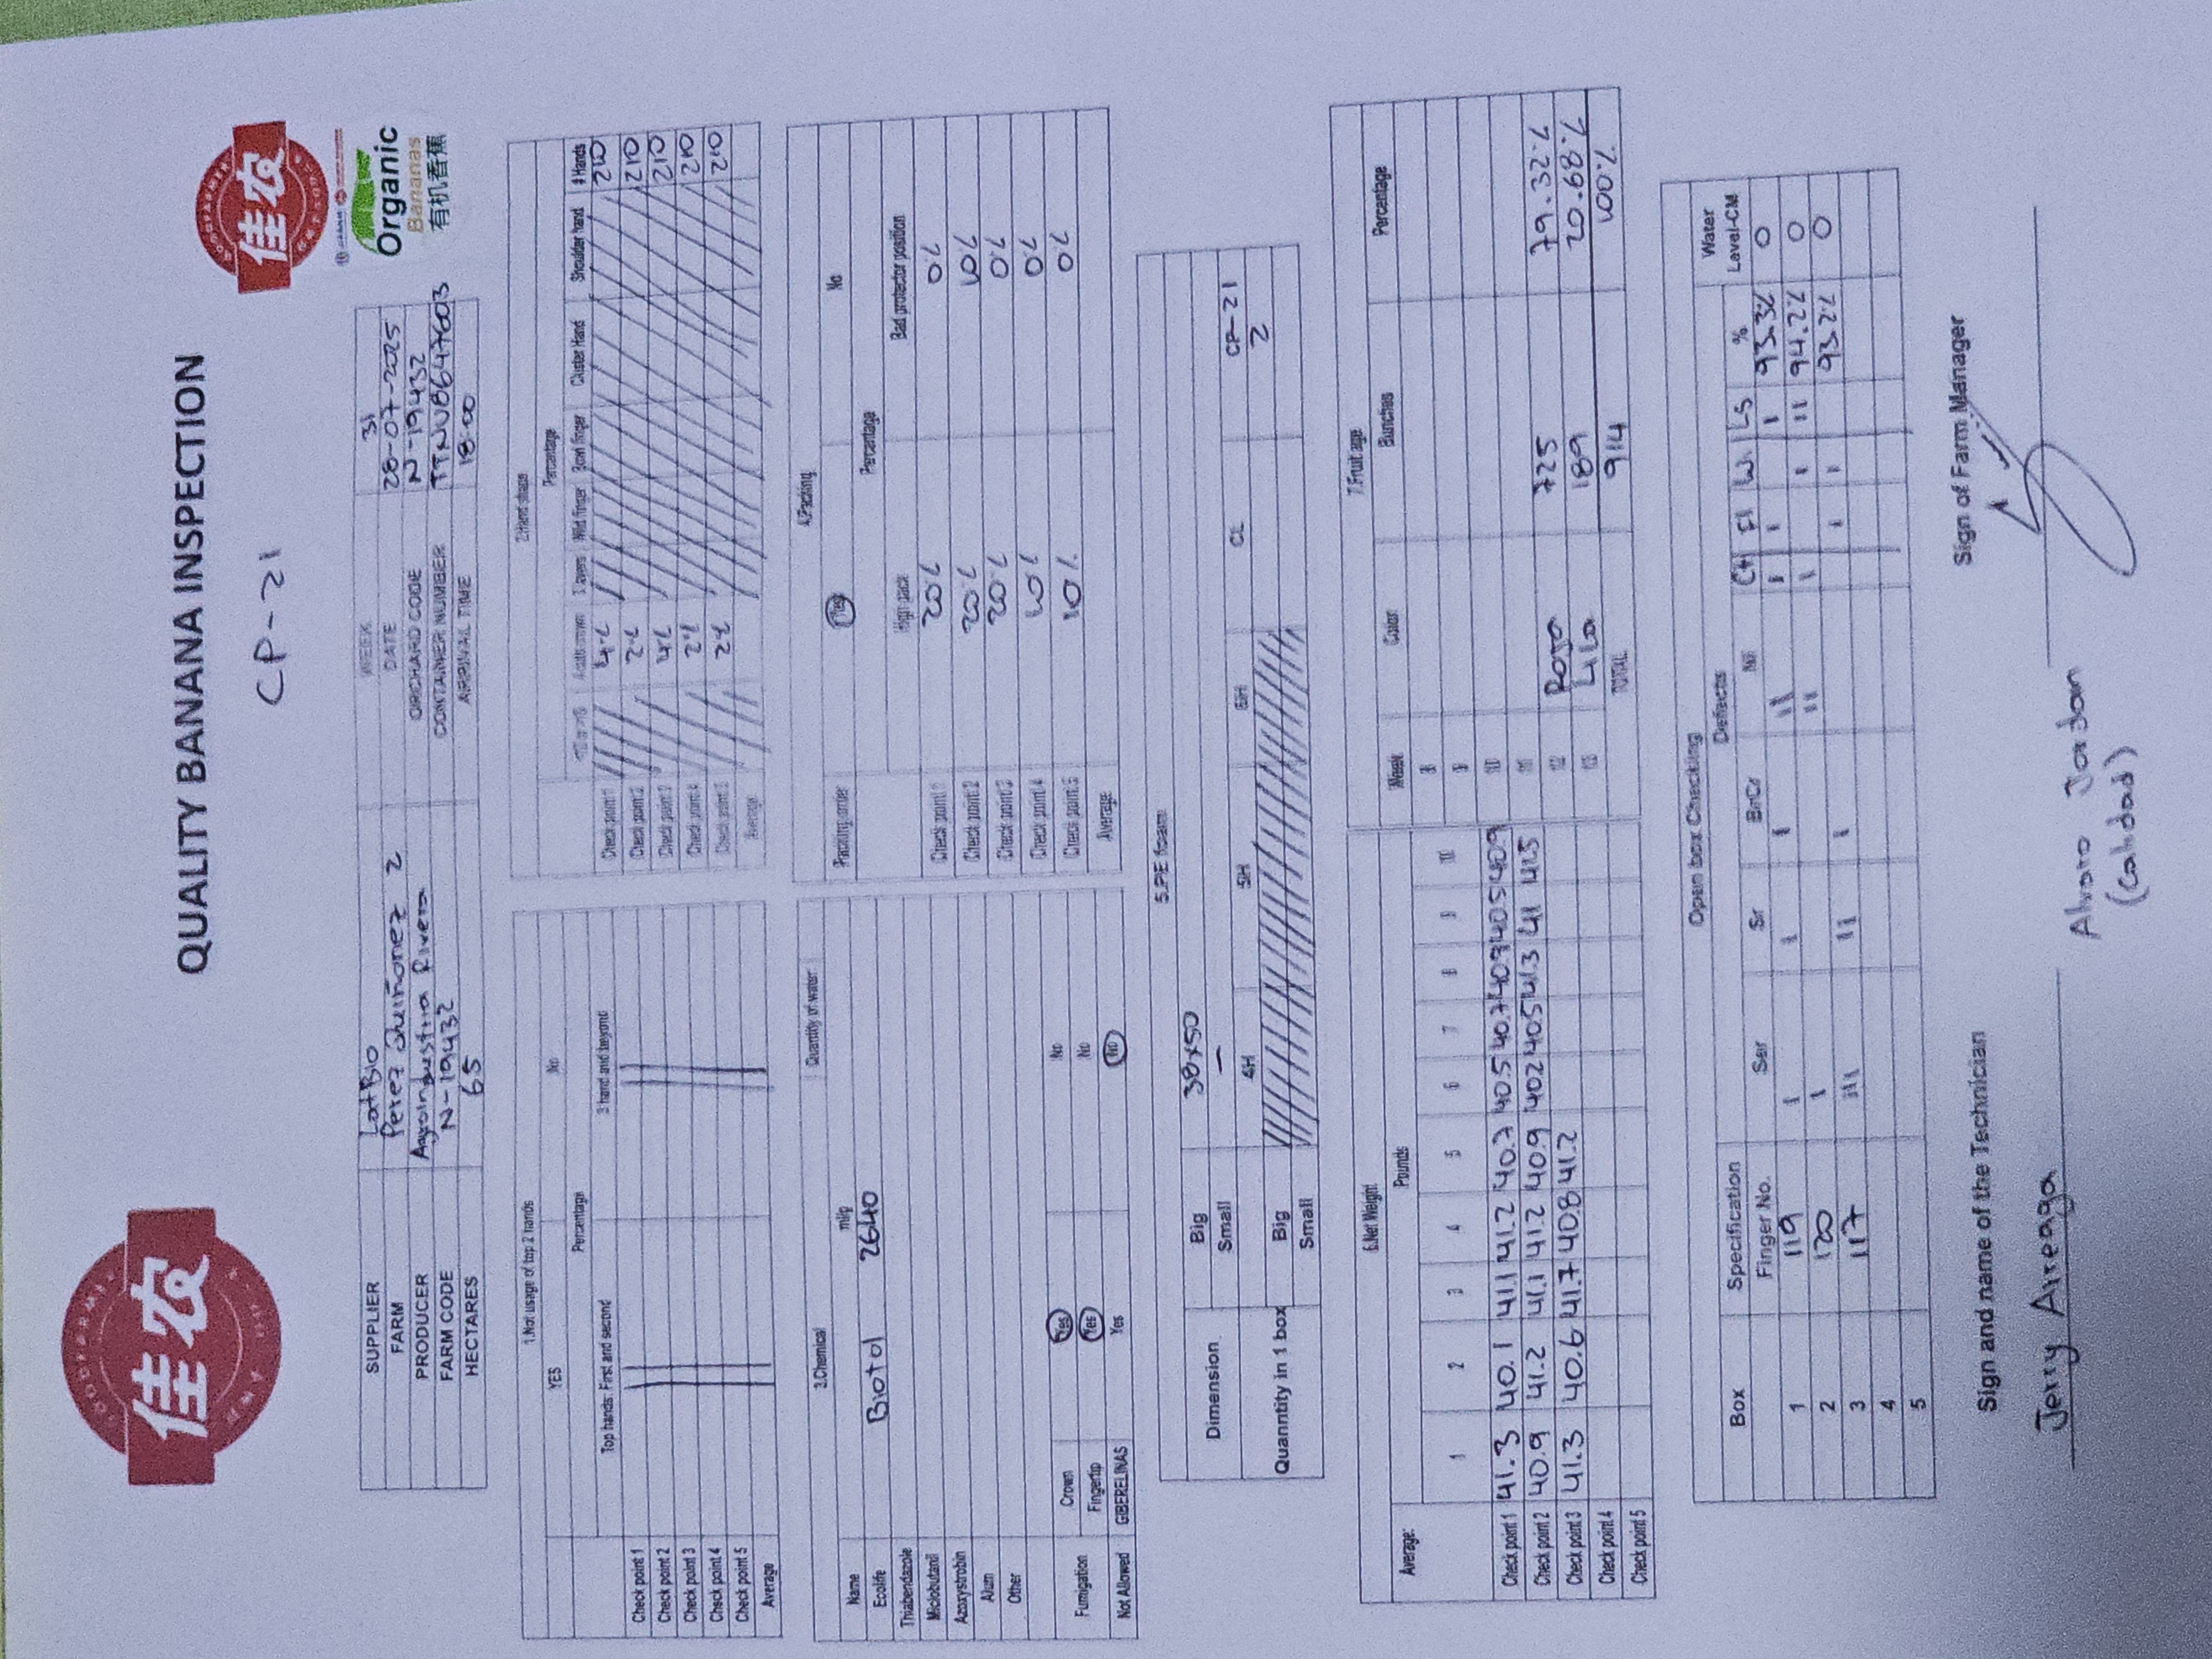 佳农
佳农
Organic
Bananas
有机香蕉
QUALITY BANANA INSPECTION
CP-21
SUPPLIER LatBio WEEK 31
FARM Perez Quiñonez 2 DATE 28-07-2025
PRODUCER Agroindustria Rivera ORCHARD CODE N-19432
FARM CODE N-19432 CONTAINER NUMBER TTNU8647603
HECTARES 65 ARRIVAL TIME 18:00
1.Not usage of top 2 hands
YES No
Percentage
Top hands: First and second 3 hand and beyond
Check point 1
Check point 2
Check point 3
Check point 4
Check point 5
Average
2.Hand shape
Percentage
Layers Mid finger Bowl finger Cluster Hand Shoulder hand # Hands
Check point 1 4% 210
Check point 2 2% 210
Check point 3 4% 210
Check point 4 2% 210
Check point 5 2% 210
Average
3.Chemical Quantity of water
Name ml/g
Ecolife Biotol 2640
Thiabendazole
Miclobutanil
Azoxystrobin
Alum
Other
Fumigation Crown Yes No
Fingertip Yes No
Not Allowed GIBERELINAS Yes No
4.Packing
Packing order Yes No
Percentage
High pack Bad protector position
Check point 1 20% 0%
Check point 2 20% 10%
Check point 3 20% 0%
Check point 4 10% 0%
Check point 5 10% 0%
Average
5.PE foam
Dimension Big 38x50
Small -
4H 5H 6H CL CP-21
Quanntity in 1 box Big 2
Small
6.Net Weight
Average: Pounds
1 2 3 4 5 6 7 8 9 10
Check point 1 41.3 40.1 41.1 41.2 40.7 40.5 40.7 40.9 40.5 40.9
Check point 2 40.9 41.2 41.1 41.2 40.9 40.2 40.5 41.3 41 41.5
Check point 3 41.3 40.6 41.7 40.8 41.2
Check point 4
Check point 5
7.Fruit age
Week Color Bunches Percentage
8
9
10
11
12 Rosa 725 79.32%
13 Lila 189 20.68%
TOTAL 914 100%
Open box Checking
Box Specification Deffects Water
Finger No. Ser Sr BrCr Ne CH FI W. LS % Level-CM
1 119 I I I II I I I 93.3% 0
2 120 I II I I II 94.2% 0
3 117 III II I I I 93.2% 0
4
5
Sign and name of the Technician Sign of Farm Manager
Jerry Arreaga
Alvaro Jordan
(Calidad)